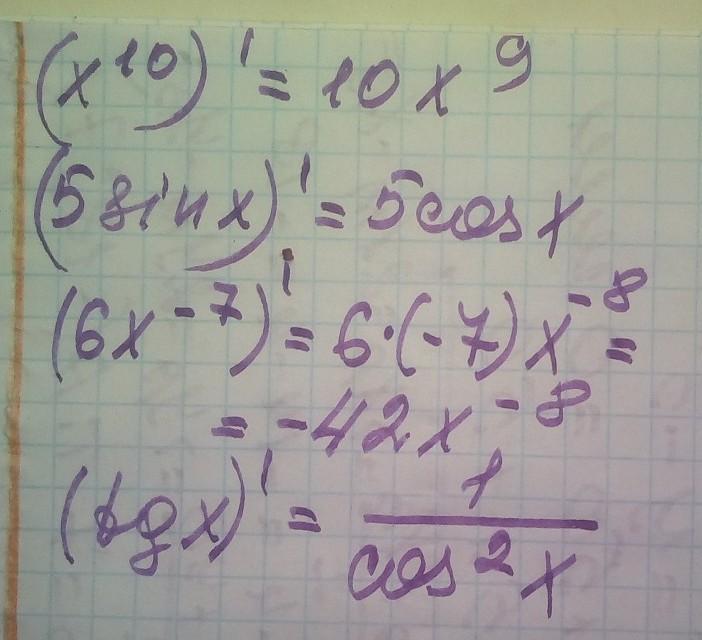 (x¹⁰)' = 10x⁹
(5sinx)' = 5cosx
(6x⁻⁷)' = 6·(-7)x⁻⁸ =
= -42x⁻⁸
(tgx)' = 1/cos²x